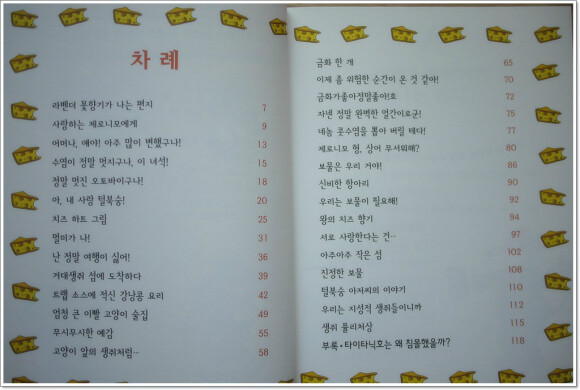 차 례
라벤더 꽃향기가 나는 편지 7
사랑하는 제로니모에게 9
어머나, 얘야! 아주 많이 변했구나! 13
수염이 정말 멋지구나, 이 녀석! 15
정말 멋진 오토바이구나! 18
아, 내 사랑 털북숭! 20
치즈 하트 그림 25
멀미가 나! 31
난 정말 여행이 싫어! 36
거대생쥐 섬에 도착하다 39
트랩 소스에 적신 강낭콩 요리 42
엄청 큰 이빨 고양이 술집 49
무시무시한 예감 55
고양이 앞의 생쥐처럼… 58
금화 한 개 65
이제 좀 위험한 순간이 온 것 같아! 70
금화가좋아정말좋아!호 72
자넨 정말 완벽한 얼간이로군! 75
네놈 콧수염을 뽑아 버릴 테다! 77
제로니모 형, 상어 무서워해? 80
보물은 우리 거야! 86
신비한 항아리 90
우리는 보물이 필요해! 92
왕의 치즈 향기 94
서로 사랑한다는 건… 97
아주아주 작은 섬 102
진정한 보물 108
털북숭 아저씨의 이야기 110
우리는 지성적 생쥐들이니까 112
생쥐 퓰리처상 115
부록·타이타닉호는 왜 침몰했을까? 118